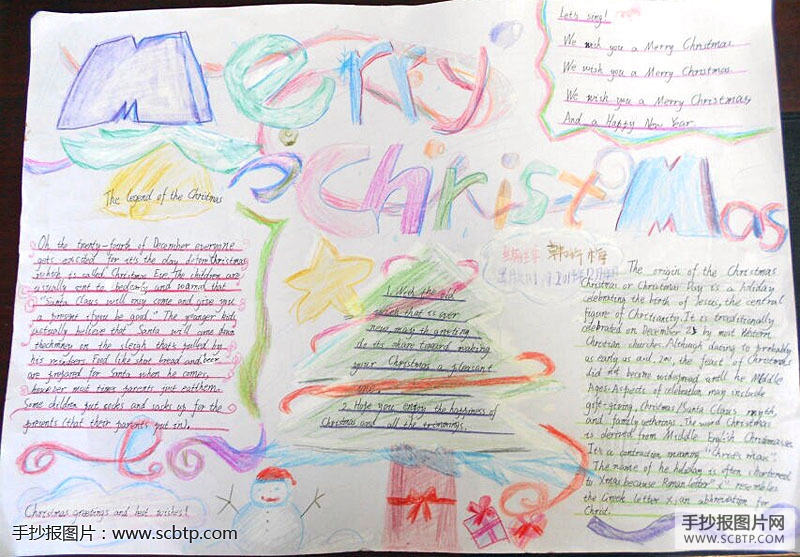 Merry
Christmas
Let's sing!
We wish you a Merry Christmas
We wish you a Merry Christmas
We wish you a Merry Christmas
And a Happy New Year
The legend of the Christmas
On the twenty-fourth of December everyone
gets excited for it's the day before Christmas
which is called Christmas Eve. The children are
usually sent to bed early and warned that
"Santa Claus will only come and give you
a present if you be good." The younger kids
actually believe that Santa will come down
thechimney on the sleigh that's pulled by
his reindeers. Food like
are prepared for Santa when he comes,
however most times parents just eat them.
Some children put socks and sacks up for the
presents (that their parents put in).
Christmas greetings and best wishes!
1. Wish the old
wish that is ever
new, may this greeting
do its share toward making
your Christmas a pleasant
one.
2. Hope you enjoy the happiness of
Christmas and all the trimmings.
韩 梅
The origin of the Christmas
Christmas or Christmas Day is a holiday
celebrating the birth of Jesus, the central
figure of Christianity. It is traditionally
celebrated on December 25 by most Western
Christian churches. Although dating to probably
as early as a.d. 200, the feast of Christmas
did not become widespread until he Middle
Ages. Aspects of celebration may include
gift-giving, Christmas, Santa Claus myth,
and family getherings. The word Christmas
is derived from Middle English Christmasse.
It's a contraction meaning "Christ's mass".
The name of he holiday is often shortened
to Xmas because Roman letter "X" resembles
the Greek letter X, an abbreviation for
Christ.
手抄报图片：www.scbtp.com
手抄报图片网
WWW.SCBTP.COM